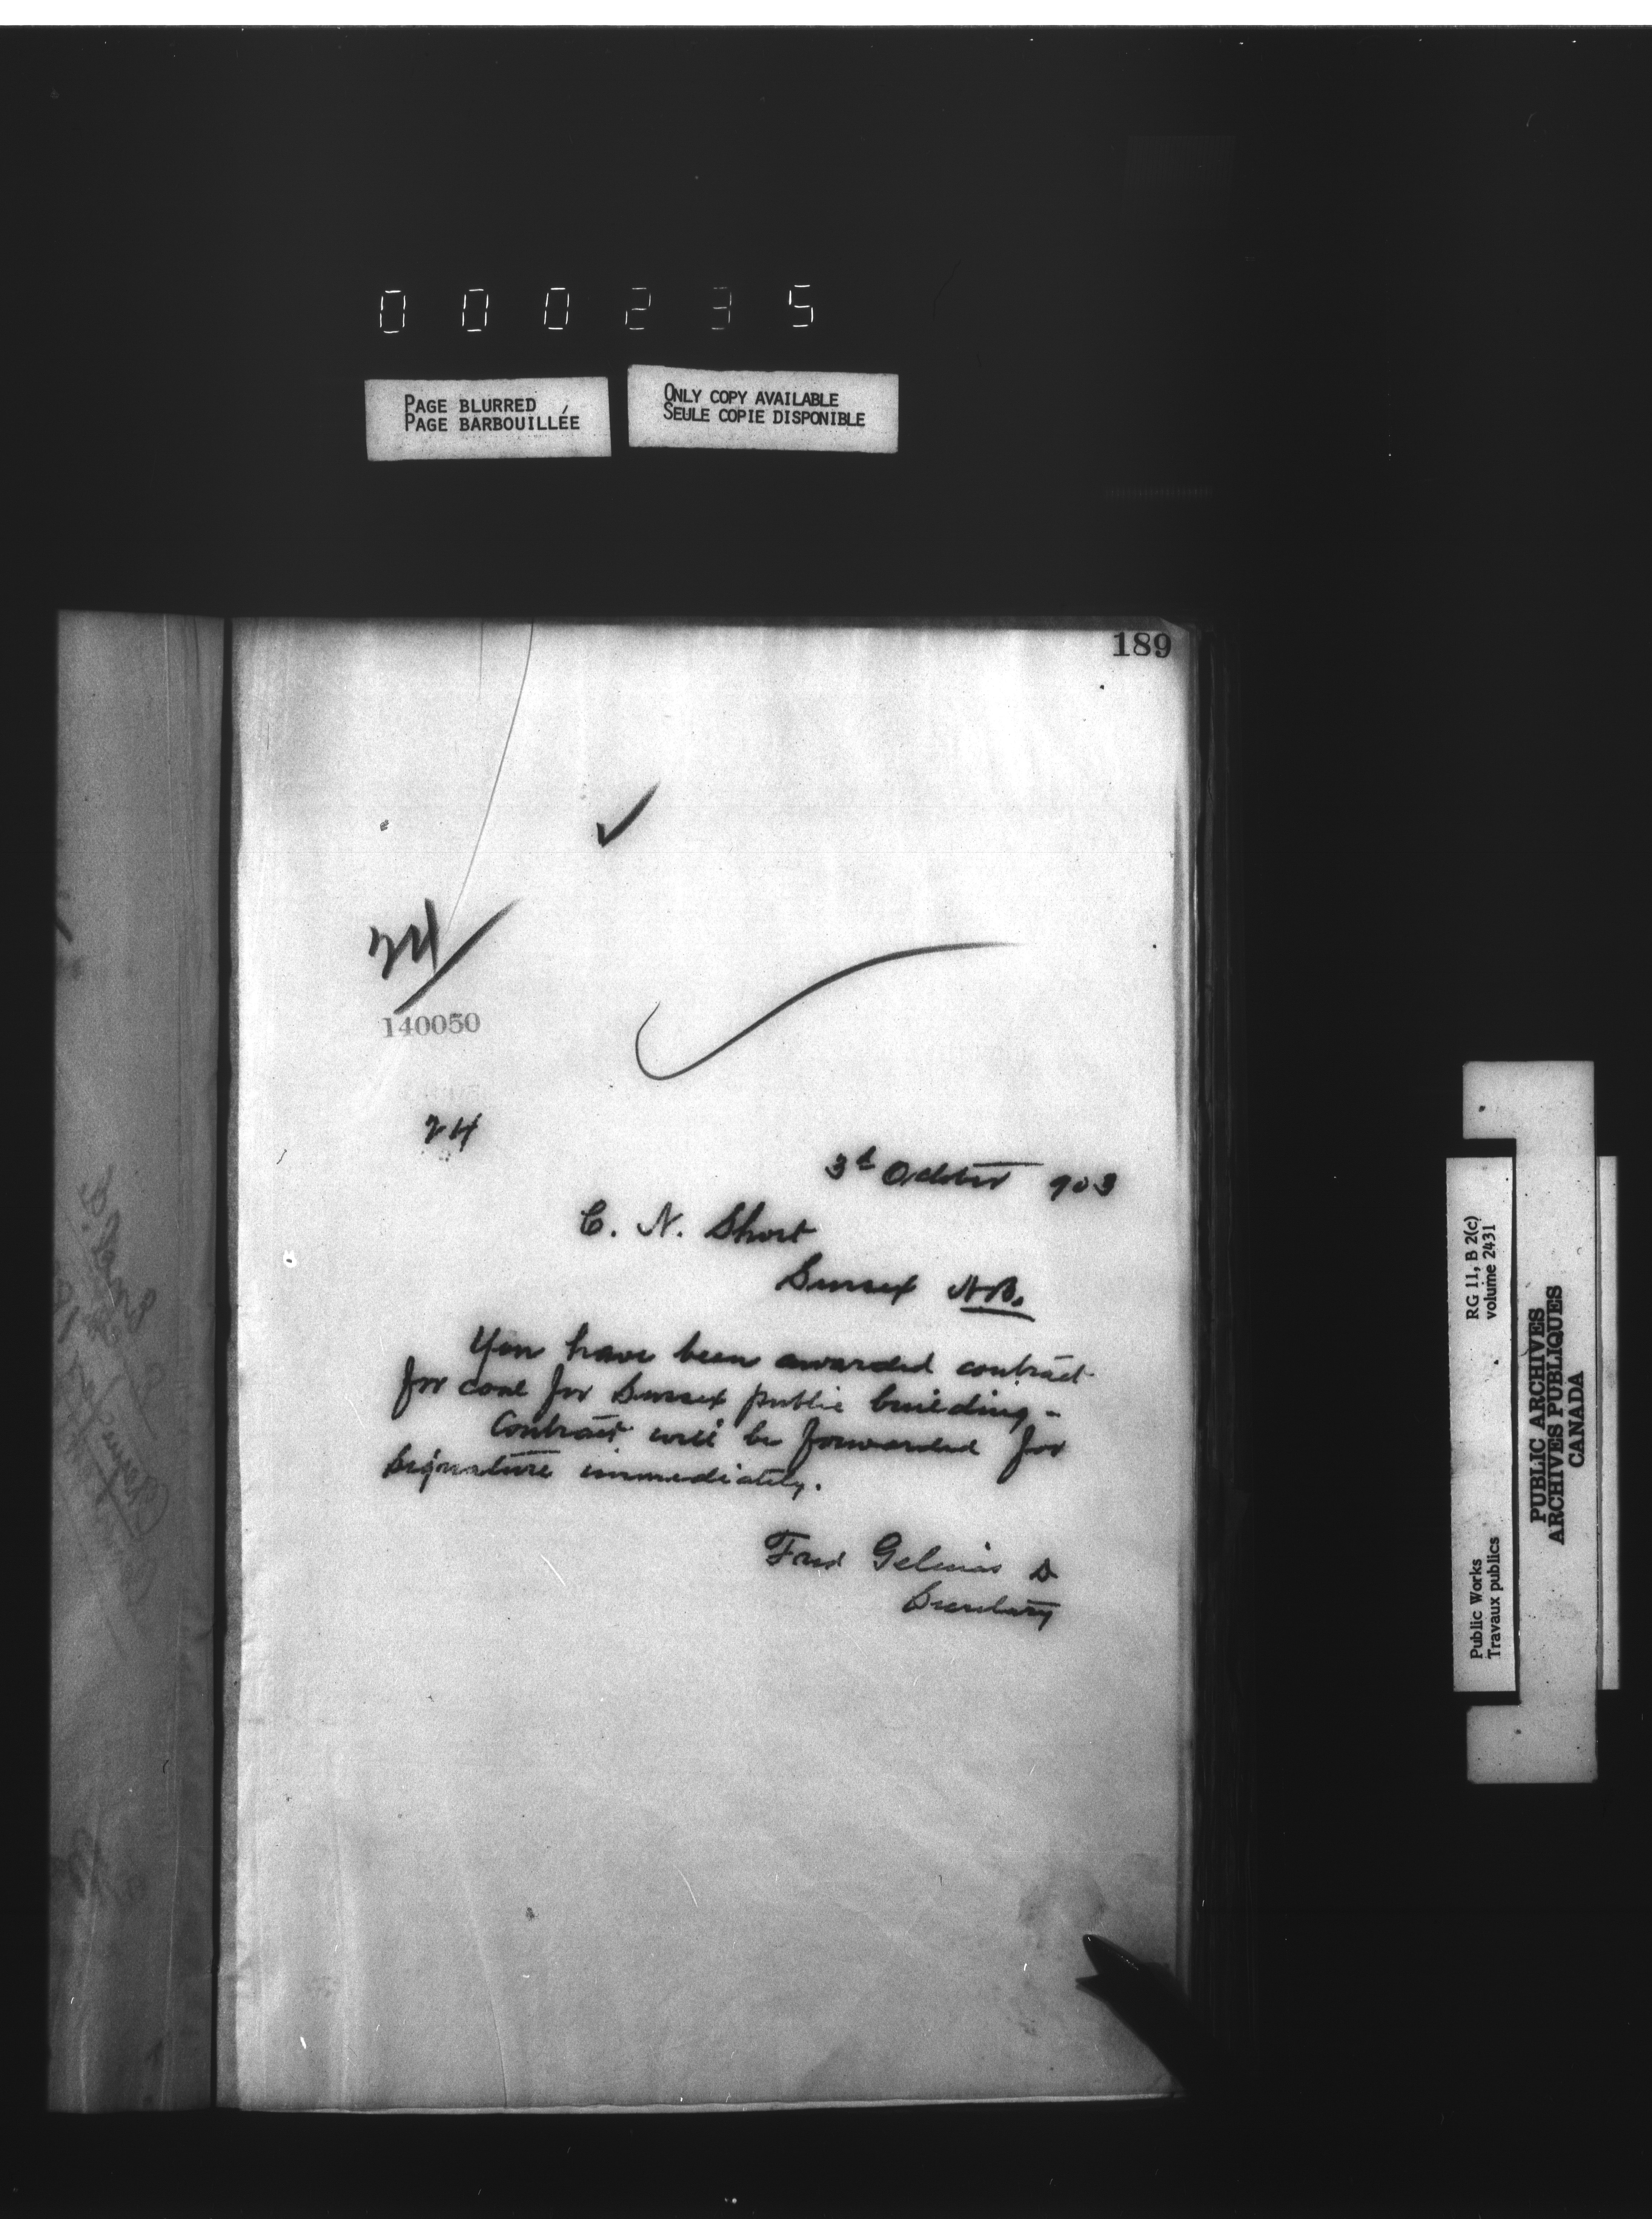 000235
PAGE BLURRED
PAGE BARBOUILLÉE
ONLY COPY AVAILABLE
SEULE COPIE DISPONIBLE
189
24
140050
24
3d October 903
C. N. Short
Sussex N.B.
You have been awarded contract
for coal for Sussex public building -
Contract will be forwarded for
signature immediately.
Fred Gelinas
Secretary
RG 11, B 2(c)
volume 2431
Public Works
Travaux publics
PUBLIC ARCHIVES
ARCHIVES PUBLIQUES
CANADA